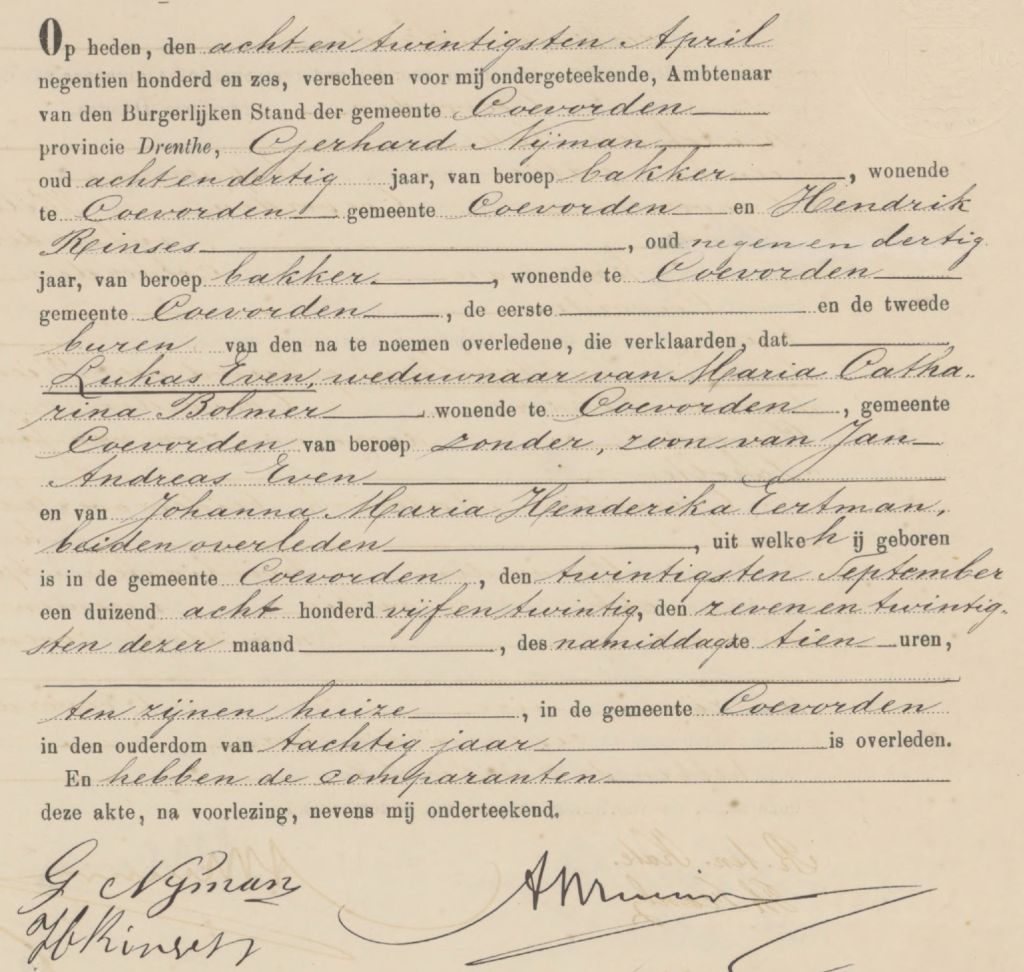 Op heden, den acht en twintigsten April
negentien honderd en zes, verscheen voor mij ondergeteekende, Ambtenaar
van den Burgerlijken Stand der gemeente Coevorden
provincie Drenthe, Gerhard Nijman
oud acht en dertig jaar, van beroep bakker, wonende
te Coevorden gemeente Coevorden en Hendrik
Rinses, oud negen en dertig
jaar, van beroep bakker, wonende te Coevorden
gemeente Coevorden, de eerste en de tweede
buren van den na te noemen overledene, die verklaarden, dat
Lukas Even, weduwnaar van Maria Catha-
rina Bolmer wonende te Coevorden, gemeente
Coevorden van beroep zonder, zoon van Jan
Andreas Even
en van Johanna Maria Henderika Eertman,
beiden overleden, uit welke hij geboren
is in de gemeente Coevorden, den twintigsten September
een duizend acht honderd vijf en twintig, den zeven en twintig-
sten dezer maand, des namiddags te tien uren,
ten zijnen huize, in de gemeente Coevorden
in den ouderdom van tachtig jaar is overleden.
En hebben de comparanten
deze akte, na voorlezing, nevens mij onderteekend.
G Nijman
H Rinses